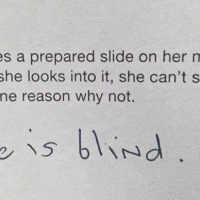 es a prepared slide on her m
she looks into it, she can't s
ne reason why not.
e is blind.